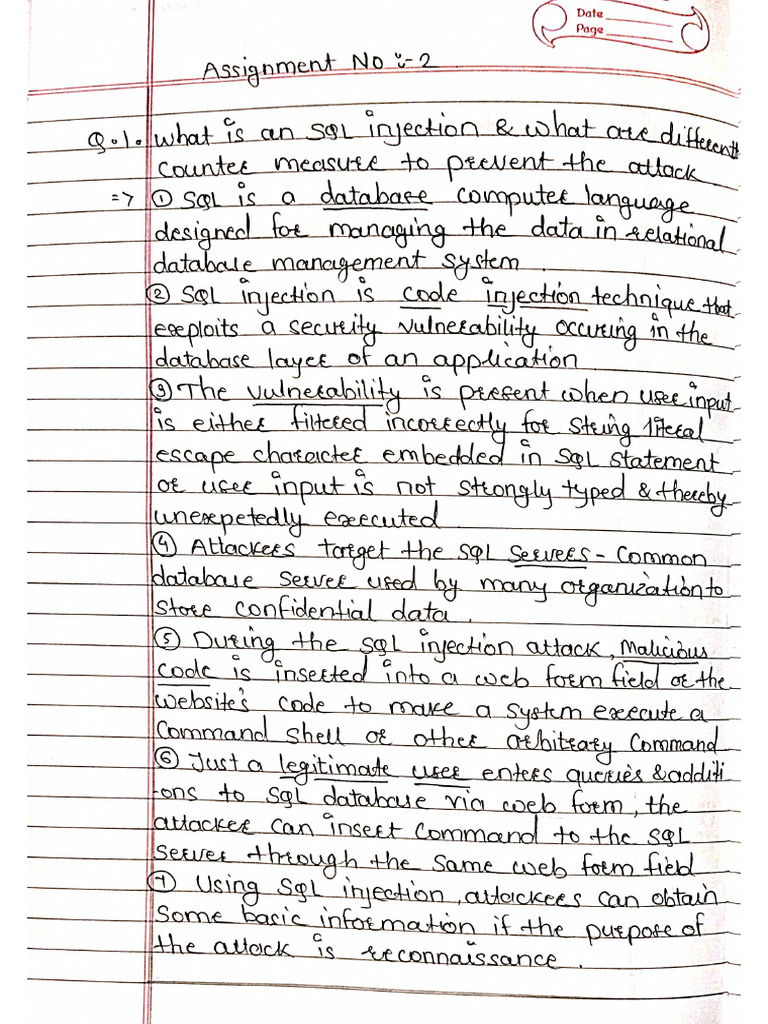 Date
Page
Assignment No :- 2
Q.1. What is an SQL injection & what are different
counter measure to prevent the attack
=> ① SQL is a database computer language
designed for managing the data in relational
database management system.
② SQL injection is code injection technique that
exploits a security vulnerability occuring in the
database layer of an application
③ The vulnerability is present when user input
is either filtered incorrectly for string literal
escape character embedded in SQL statement
or user input is not strongly typed & thereby
unexpetedly executed
④ Attackers target the SQL servers - common
database server used by many organization to
store confidential data.
⑤ During the SQL injection attack, Malicious
code is inserted into a web form field or the
website's code to make a system execute a
command shell or other arbitrary command
⑥ Just a legitimate user enters queries & additi
-ons to SQL database via web form, the
attacker can insert command to the SQL
server through the same web form field
⑦ Using SQL injection, attackers can obtain
some basic information if the purpose of
the attack is reconnaissance.